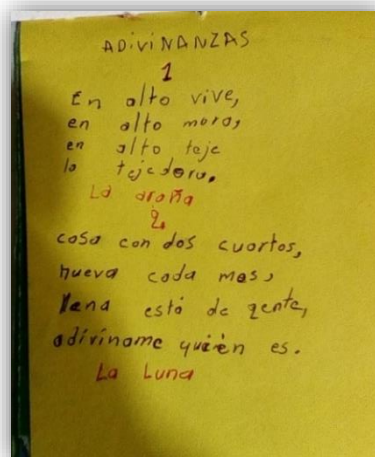 ADIVINANZAS
1
En alto vive,
en alto mora,
en alto teje
la tejedora.
La araña
2
cosa con dos cuartos,
nueva cada mes,
llena está de gente,
adivíname quién es.
La Luna